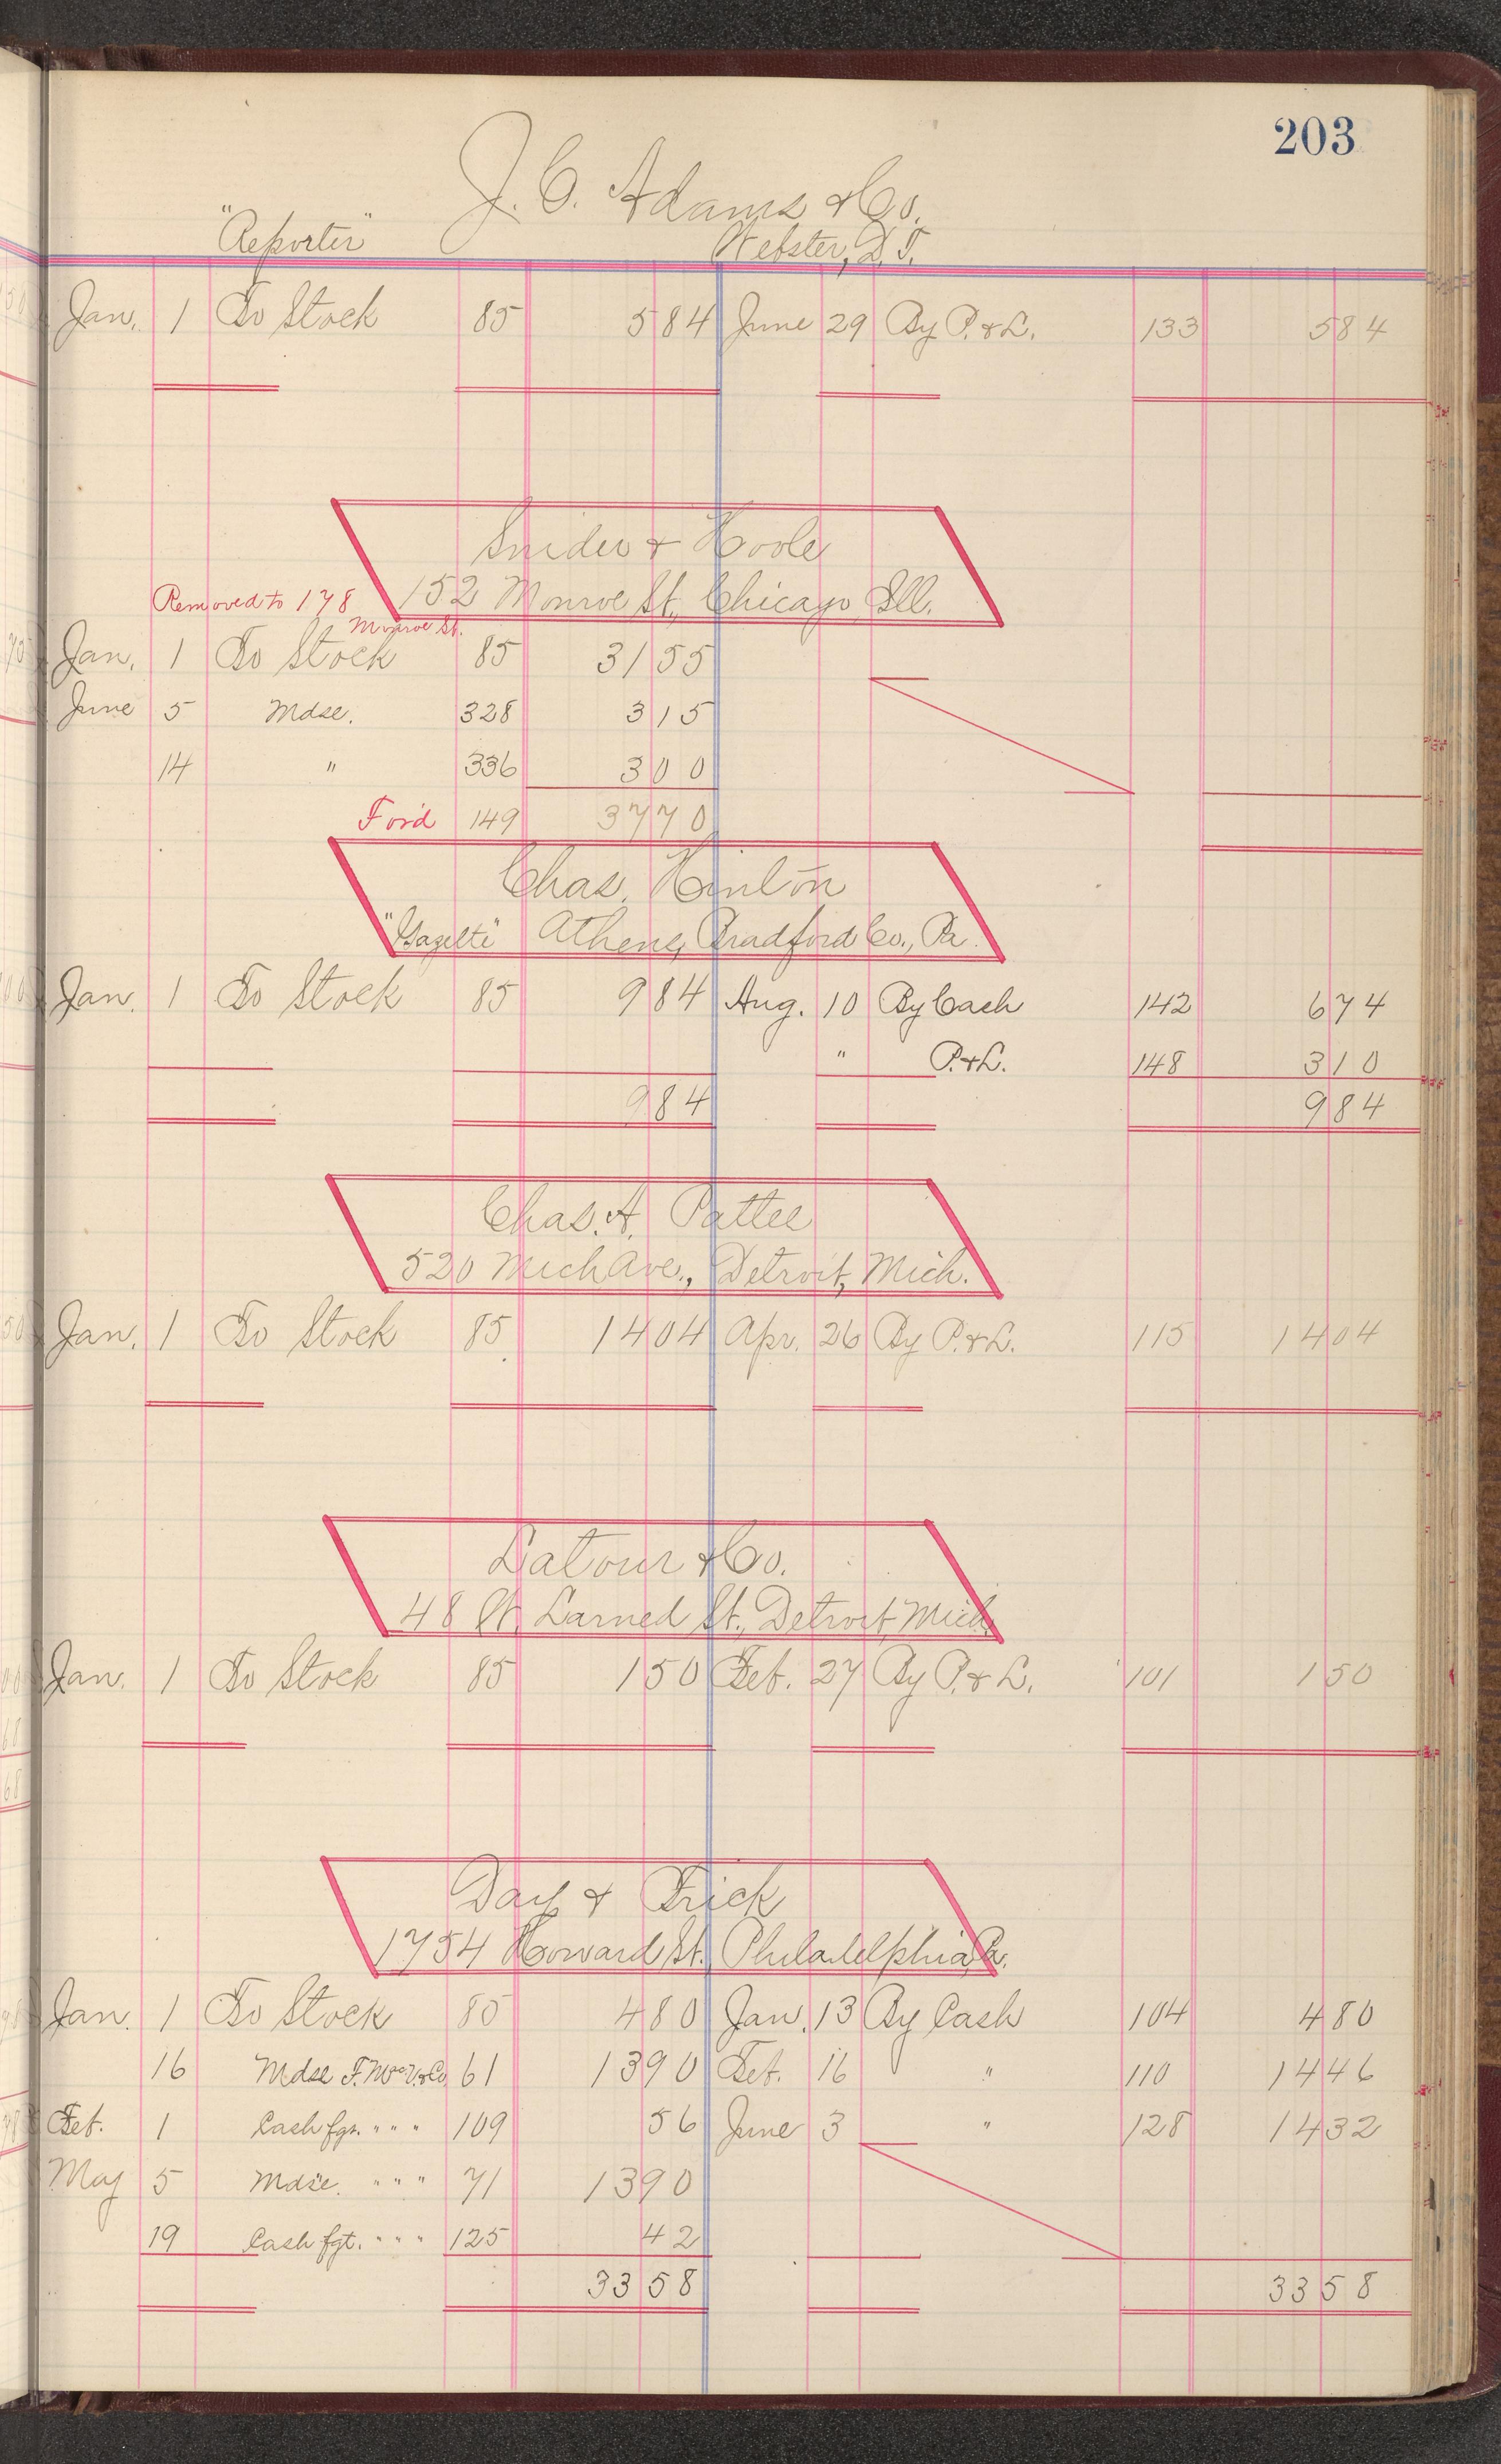 203
J. C. Adams & Co.
"Reporter" Webster, D. T.
Jan. 1 To Stock 85 5 84 June 29 By P. & L. 133 5 84
Snider & Hoole
152 Monroe St., Chicago Ill.
Removed to 178
Monroe St.
Jan. 1 To Stock 85 31 55
June 5 Mdse. 328 3 15
14 " 336 3 00
For'd 149 37 70
Chas. Hinton
"Gazette" Athens, Bradford Co., Pa.
Jan. 1 To Stock 85 9 84 Aug. 10 By Cash 142 6 74
" P. & L. 148 3 10
9 84 9 84
Chas. A. Pattee
520 Mich Ave., Detroit, Mich.
Jan. 1 To Stock 85 14 04 Apr. 26 By P. & L. 115 14 04
Latour & Co.
48 W. Larned St., Detroit, Mich.
Jan. 1 To Stock 85 1 50 Feb. 27 By P. & L. 101 1 50
Day & Frick
1754 Howard St. Philadelphia, Pa.
Jan. 1 To Stock 85 4 80 Jan. 13 By Cash 104 4 80
16 Mdse 61 13 90 Feb. 16 " 110 14 46
Feb. 1 Cash fgt. " " " 109 56 June 3 " 128 14 32
May 5 Mdse. " " " 71 13 90
19 Cash fgt. " " " 125 42
33 58 33 58